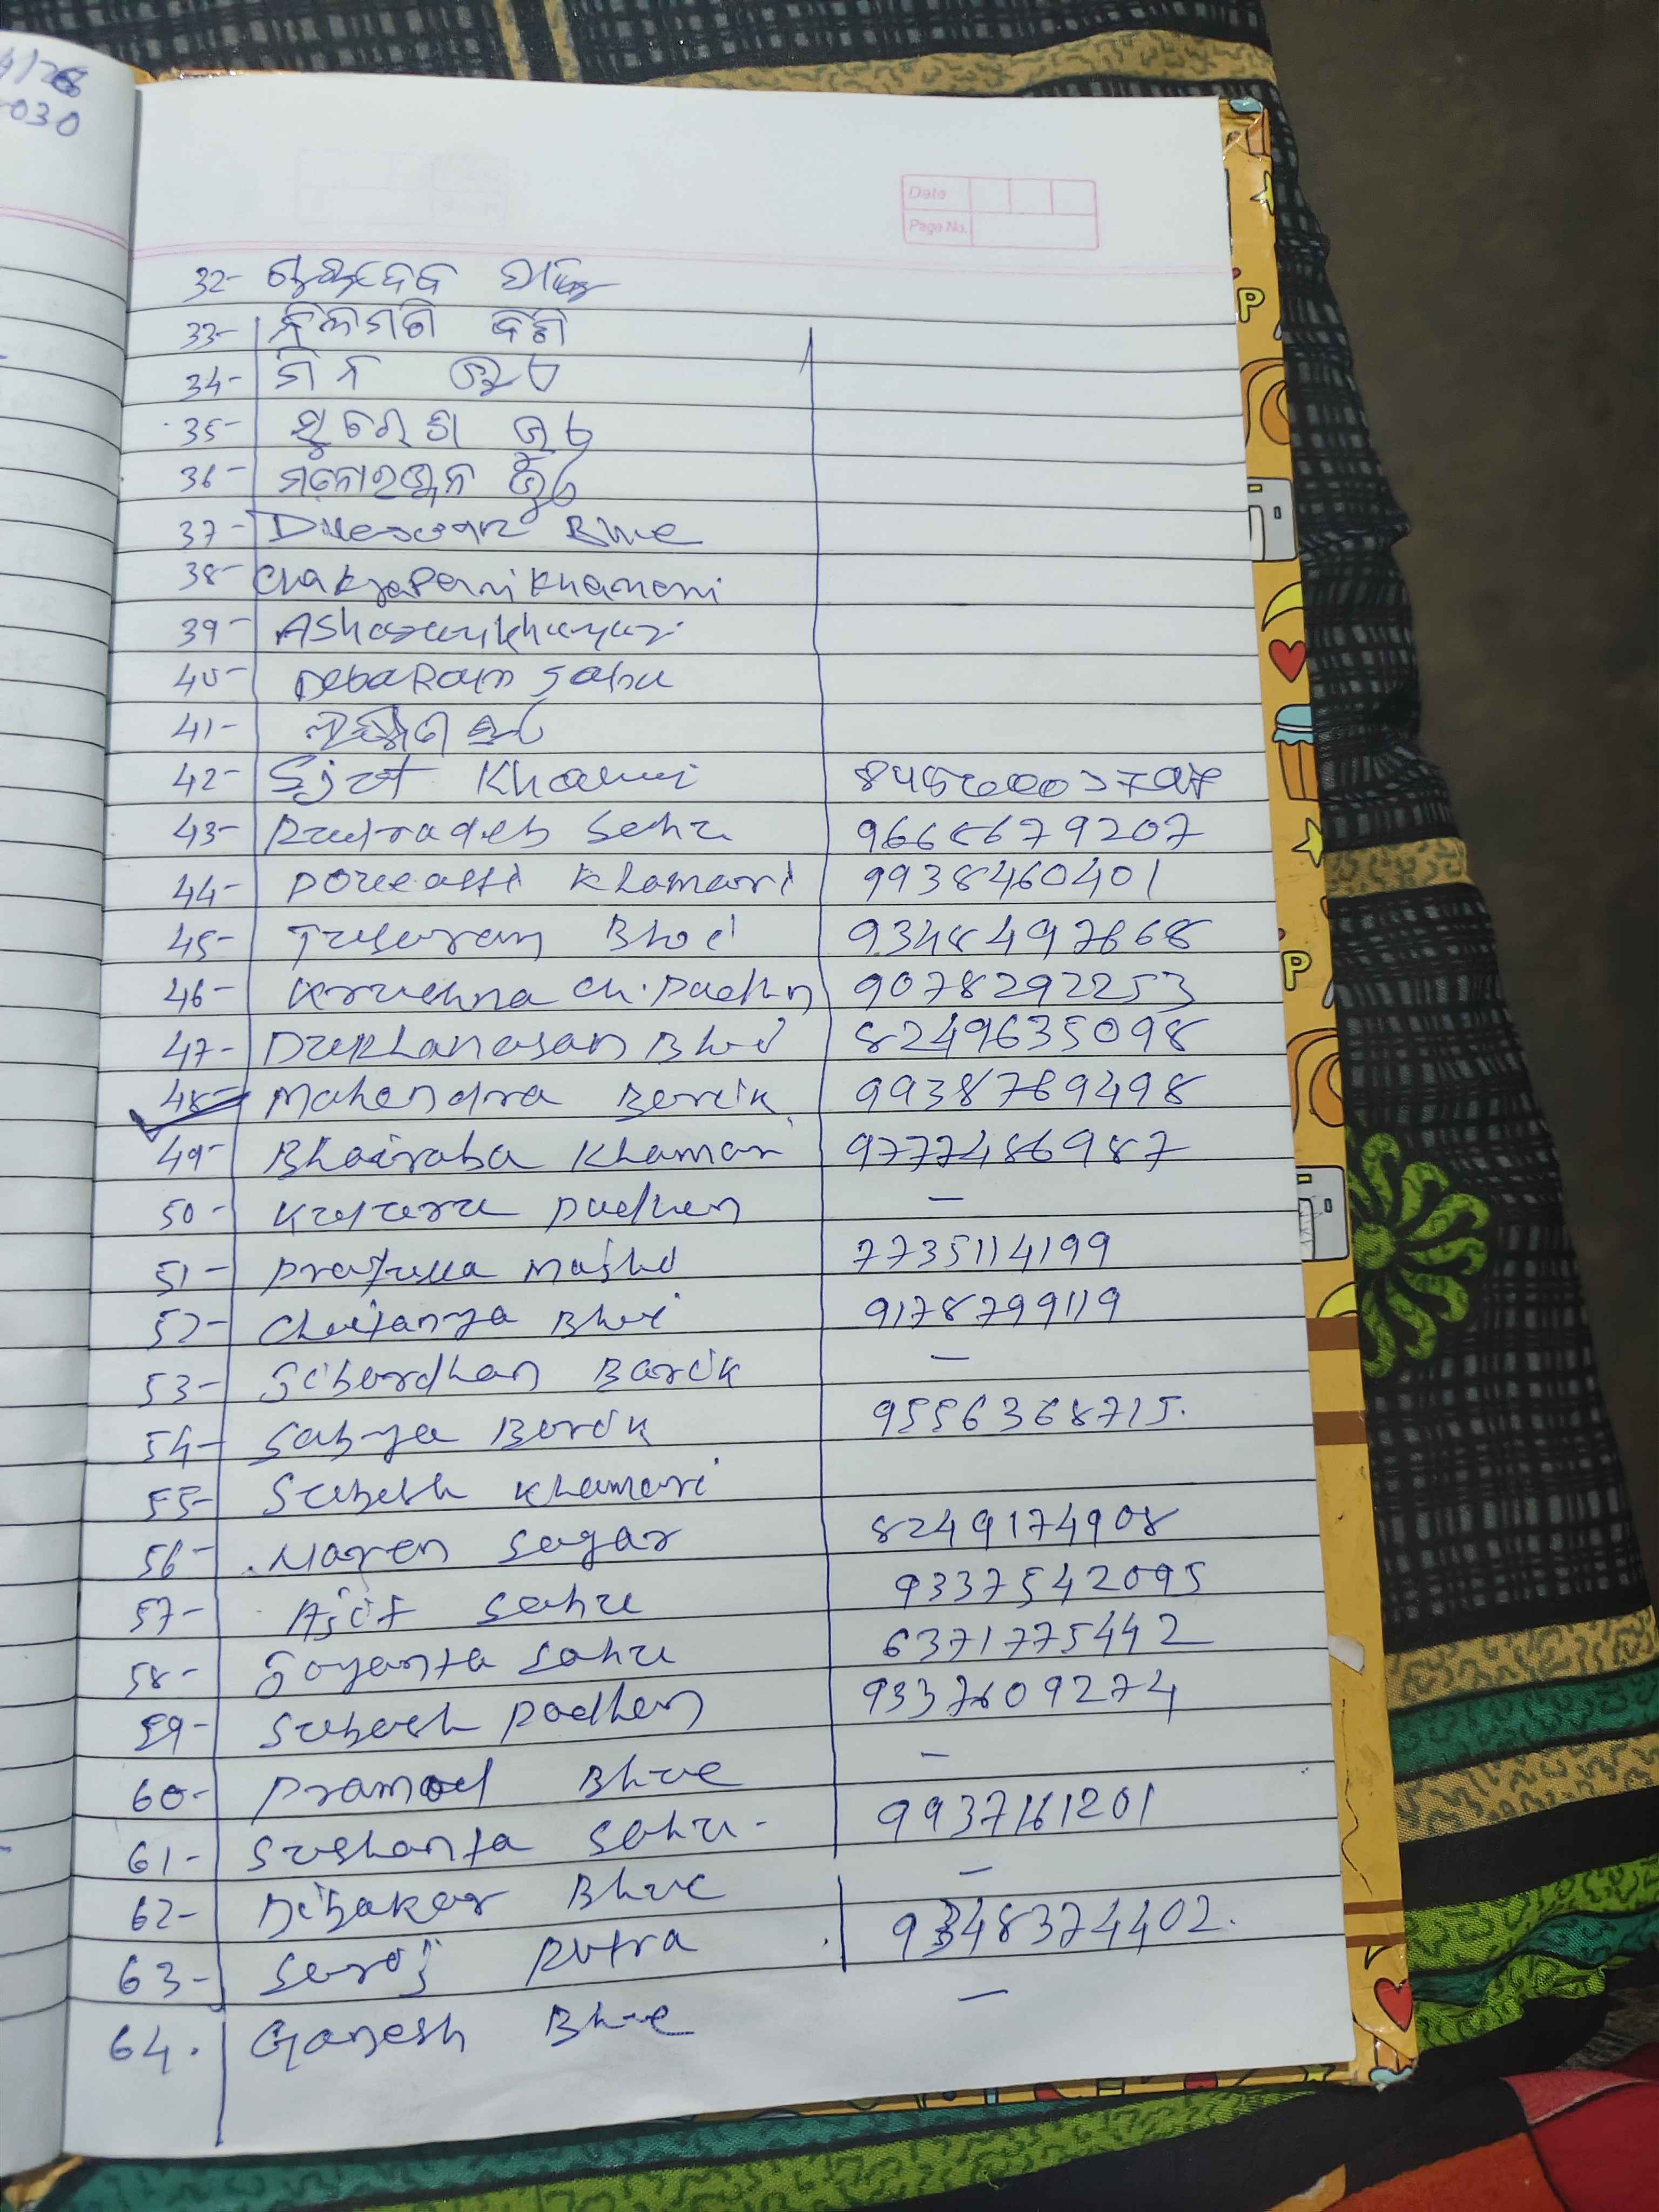 4/26
030
Date
Page No.
32-
33- ନିଳମଣି ବାଗ
34- ମିନ ଭୁଏ
35- ସୁରେଶ ଭୁଏ
36- ମନୋରଞ୍ଜନ ଭୁଏ
37- Dileswar Bhue
38- Chakrapani Khamari
39-
40- Debaram Sahu
41-
42- Sjit Khamari
43- Rudradeb Sahu 9668679207
44- Khamari 9938460401
45- Tularam Bhoi 9348497668
46- Krushna Ch. Padhn 9078292253
47- Dukhanasan Bhoi 8249635098
48- Mahendra Barik 9938789498
49- Bhairaba Khamari 9777486987
50- Padhan -
51- Prafulla Majhi 7735114199
52- Chaitanya Bhoi 9178799119
53- Gibardhan Barik -
54- Sabya Barik 9556368715.
55- Subash Khamari
56- Naren Sagar 8249174908
57- Ajit Sahu 9337542095
58- Jayanta Sahu 6371775442
59- Subash Padhan 9337609274
60- Pramod Bhue -
61- Sushanta Sahu - 9937161201
62- Dibakar Bhue -
63- Saroj Putra 9348374402.
64. Ganesh Bhue -